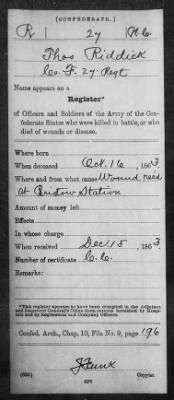 (CONFEDERATE.)
R 27 N.C.
Thos Riddick
Co. F. 27 Regt
Name appears on a
Register*
of Officers and Soldiers of the Army of the Confederate States who were killed in battle, or who died of wounds or disease.
Where born
When deceased Oct. 16, 1863
Where and from what cause Wound rec'd
at Bristow Station
Amount of money left
Effects
In whose charge
When received Dec. 15, 1863
Number of certificate C. C.
Remarks:
*This register appears to have been compiled in the Adjutant and Inspector General's Office from returns furnished by Hospitals and by Regimental and Company Officers.
Confed. Arch., Chap. 10, File No. 9, page 196
J Funk
Copyist.